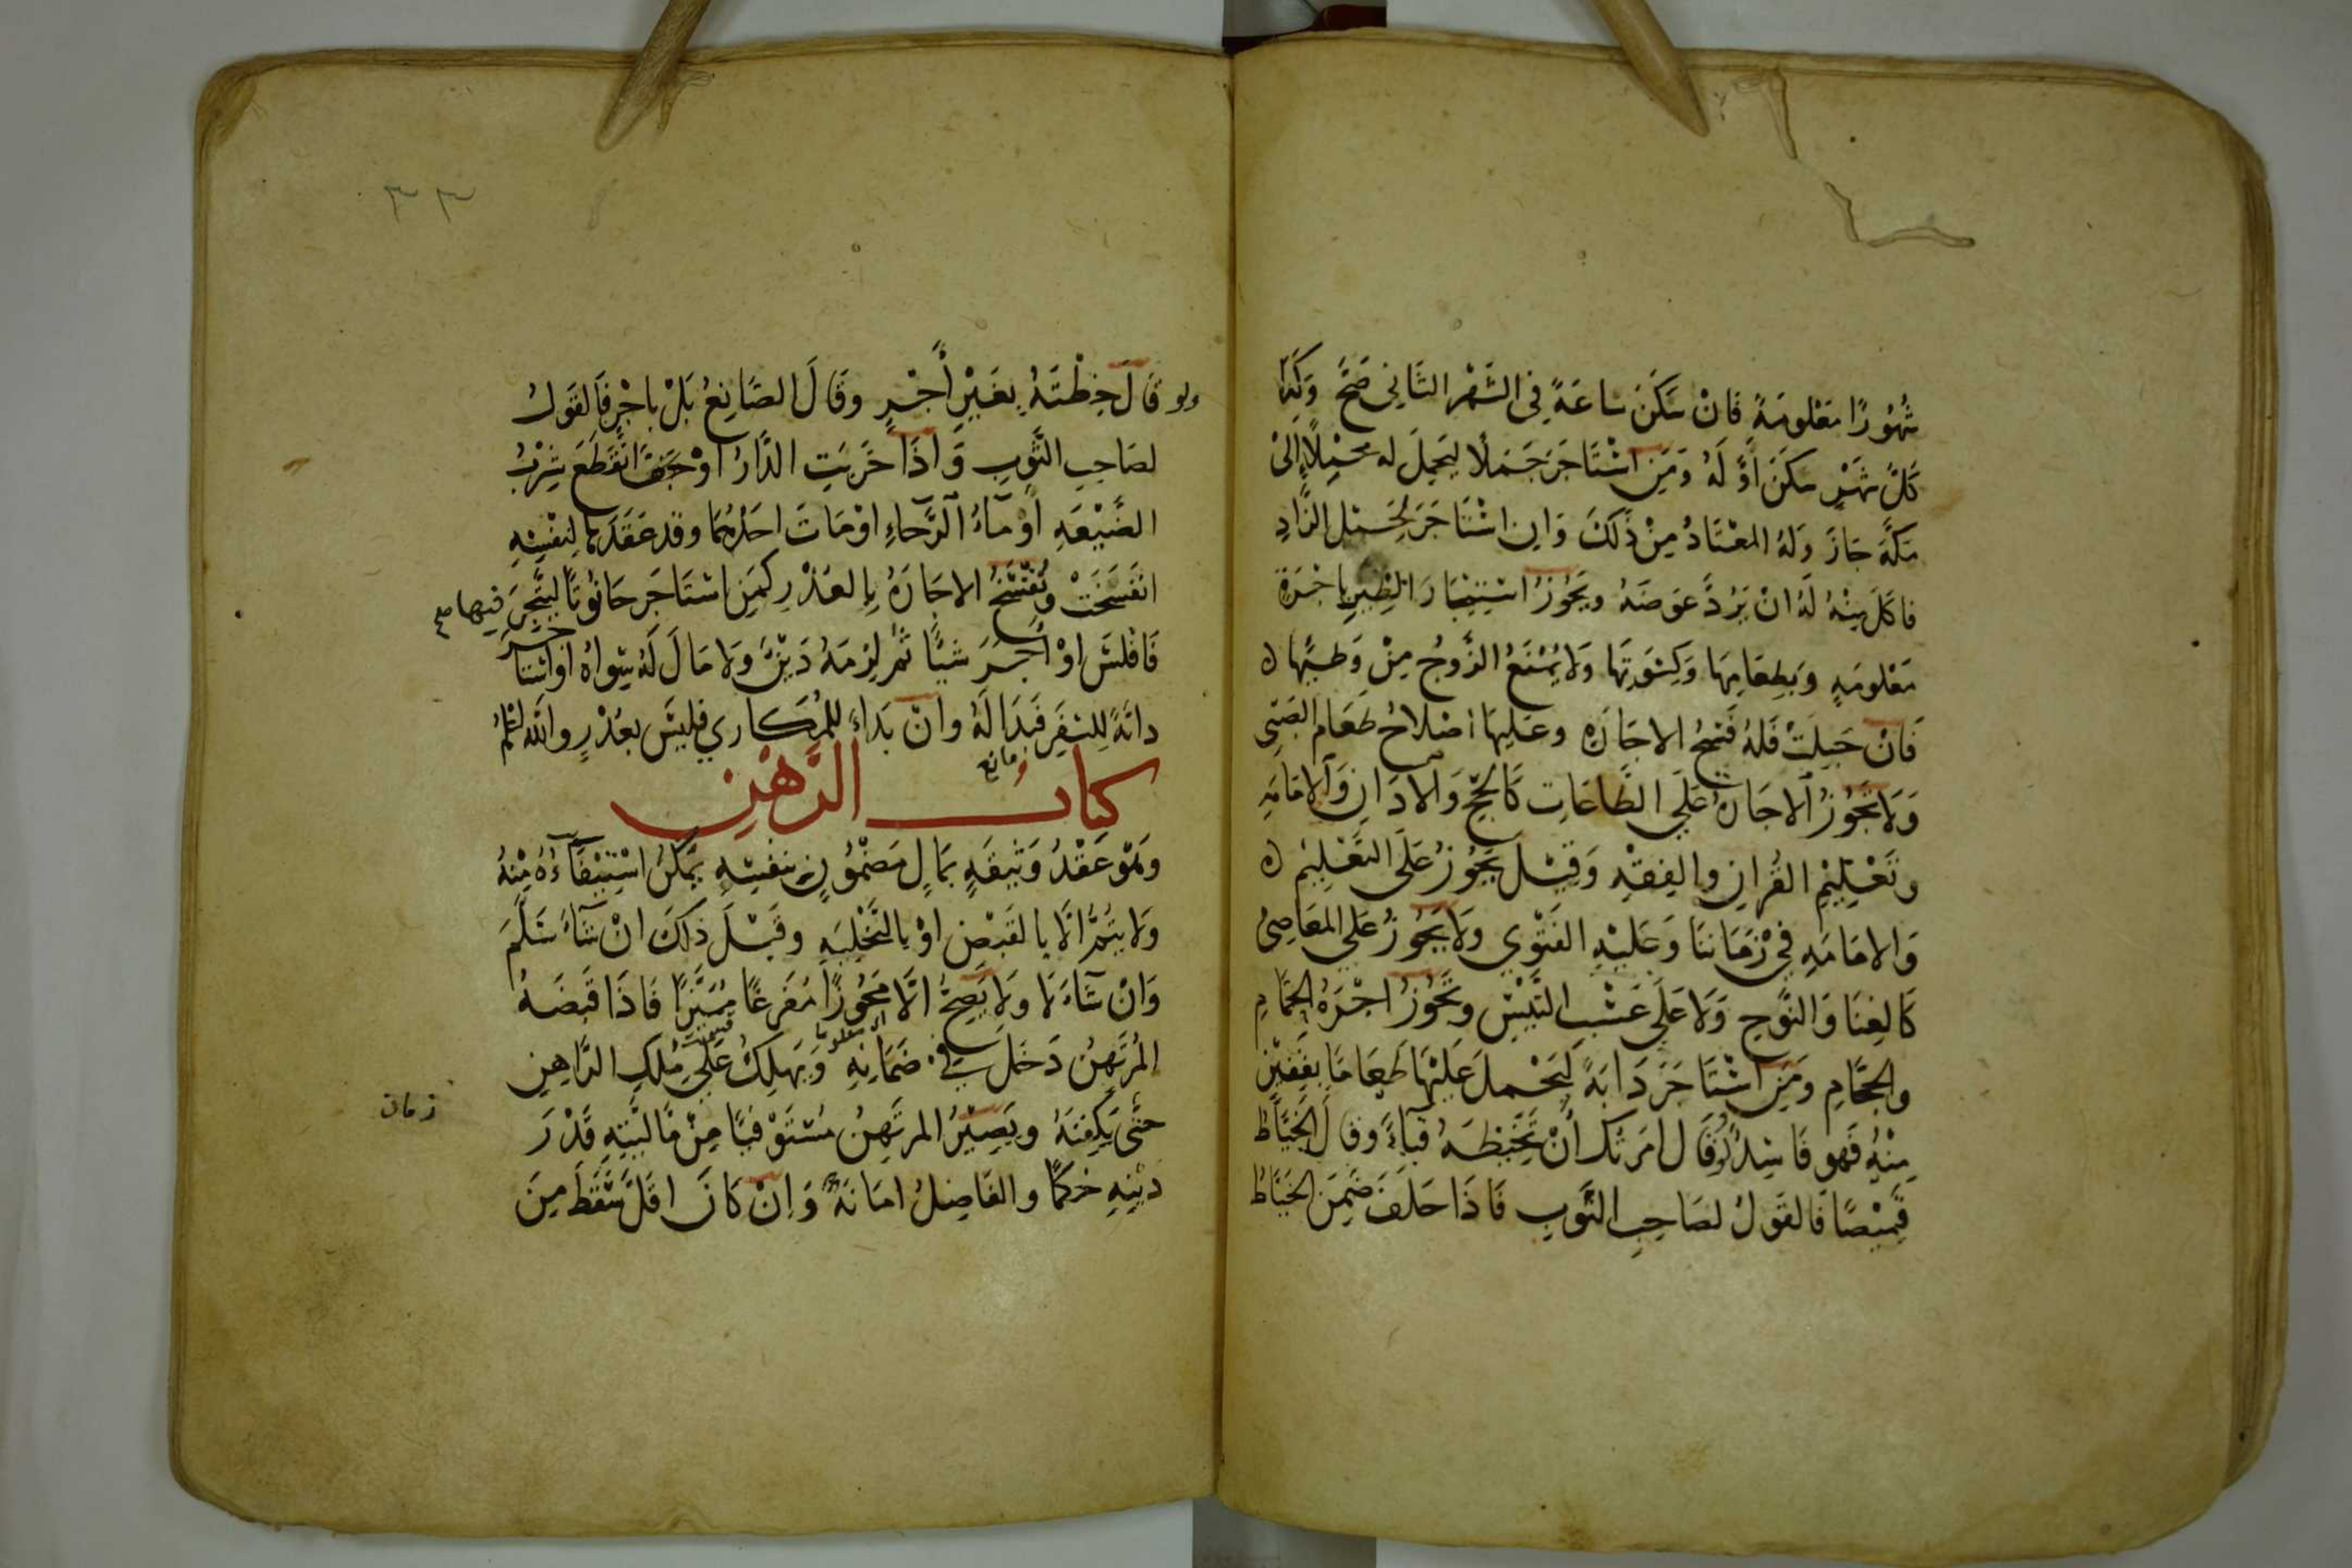 شُهُورًا مَعْلومَةً فَانْ سَكَنَ سَاعَةً فِى الشَّهْرِ الثَّانِى صَحَّ وَكَذَا
كُلّ شَهْرٍ سَكَنَ اَوَّلَهُ وَمَنِ اسْتَاجَرَ جَمَلًا لِيَحْمِلَ له مَحْمِلًا اِلىٰ
مَكَّةَ جَازَ وَلَهُ المُعْتَادُ مِنْ ذَلكَ وَانِ اسْتَاجَرَ لِحَمْلِ الزَّادِ
فاكَلَ مِنْهُ لَهُ انْ يَرُدَّ عِوَضَهُ ويَجُوزُ اسْتِيجَارُ الظِّيرِ باجْرَةٍ
مَعْلومَةٍ وَبِطعَامِهَا وَكِسْوَتِهَا وَلا يُمْنَعُ الزَّوجُ مِنْ وَطيِهَا
فَانْ حَبِلَتْ فَلَهُ فَسْخُ الاجَارَةِ وعَليهَا اصْلاحُ طَعَام الصَّبِى
وَلا تَجُوزُ الاجَارَةُ عَلَي الطَّاعَاتِ كَالحَجِّ وَالادَانِ وَالامَامَةِ
وتَعْلِيْمِ القُرانِ والفِقْهِ وَقِيْلَ يَجُوزُ عَلَى التَعْلِيْمِ
وَالامَامَةِ فِي زَمَانِنَا وَعَلَيْهِ الفَتْوي ولا يَجُوزُ عَلَي المعَاصِى
كَالغِنَا وَالنَّوحِ وَلا عَلَي عَسْبِ التَّيْسِ وتَجُوزُ اجْرَةُ الحَمَّامِ
والحجَّامِ ومَنِ اسْتَاجَرَ دَابَةً لِيَحْمِلَ عَلَيْهَا طَعَامًا بقَفِيْزٍ
مِنْهُ فَهو فَاسِدٌ وَلَوْ قَالَ امَرتُكَ أنْ تَخِيْطَهُ قبَاءً وقالَ الخَيَّاطُ
قَمِيْصًا فَالقَولُ لصَاحِبِ الثَّوبِ فَاذَا حَلَفَ ضَمِنَ الخَيَّاطُ
ولو قَالَ خِطْتَهُ بِغَيْرِ أجْرٍ وقَالَ الصَّانِعُ بَلْ باجْرٍ فَالقَولُ
لصَاحِبِ الثَّوبِ وَاذَا خَرِبَتِ الدَّارُ اوْ انْقَطَعَ شِرْبُ
الضَّيْعَةِ اوْ مَآءُ الرَّحَاءِ اوْ مَاتَ احَدُهُمَا وقد عَقَدَهَا لِنفْسِهِ
انْفَسَخَتْ وتُفْسَخُ الاجَارَةُ بِالعُذْرِ كمَنِ اسْتَاجَرَ حَانُوتًا ليَتَّجِرَ فيها صح
فَافْلسَ اوْ أجَرَ شيًا ثمّ لزِمَهُ دَيْنٌ وَلا مَالَ لَهُ سِوَاهُ اوْ اسْتَاجَرَ
دابَةً لِلسَفَرِ فبَدَا لَهُ وانْ بَدَاءَ للمُكَاري فليسَ بعُذْرٍ والله اعْلمُ
كتابُ الرَّهْنِ
ومانع
وهُوَ عَقْدُ وَثِيقَةٍ بمَالٍ مَضْمُونٍ بنفسِهِ يُمكنُ اسْتِيْفَآءُهُ مِنْهُ
وَلا يتمُّ الَّا بالقَبْضِ اوْ بالتَّخْلِيَةِ وقَبْلَ ذلكَ انْ شَآءَ سَلَّمَ
وَانْ شَآءَ لا ولا يَصِحُّ الَّا مَحُوزًا مُفَرغًا مُمَيَّزًا فَاذَا قَبَضَهُ
المُرتَهِنُ دَخَلَ فِي ضَمَانِهِ وَيَهلِكُ عَلَي مِلكِ الرَّاهِنِ
زمان
حتَّى يُكفِنَهُ ويَصِيْرُ المرتَهِنُ مُسْتَوْفيًا مِنْ مَّاليَّتِهِ قَدْرَ
دَيْنِهِ حُكمًا والفَاضِلُ امَانَةٌ وَانْ كَانَ اقَلَّ سَقَطَ مِنَ